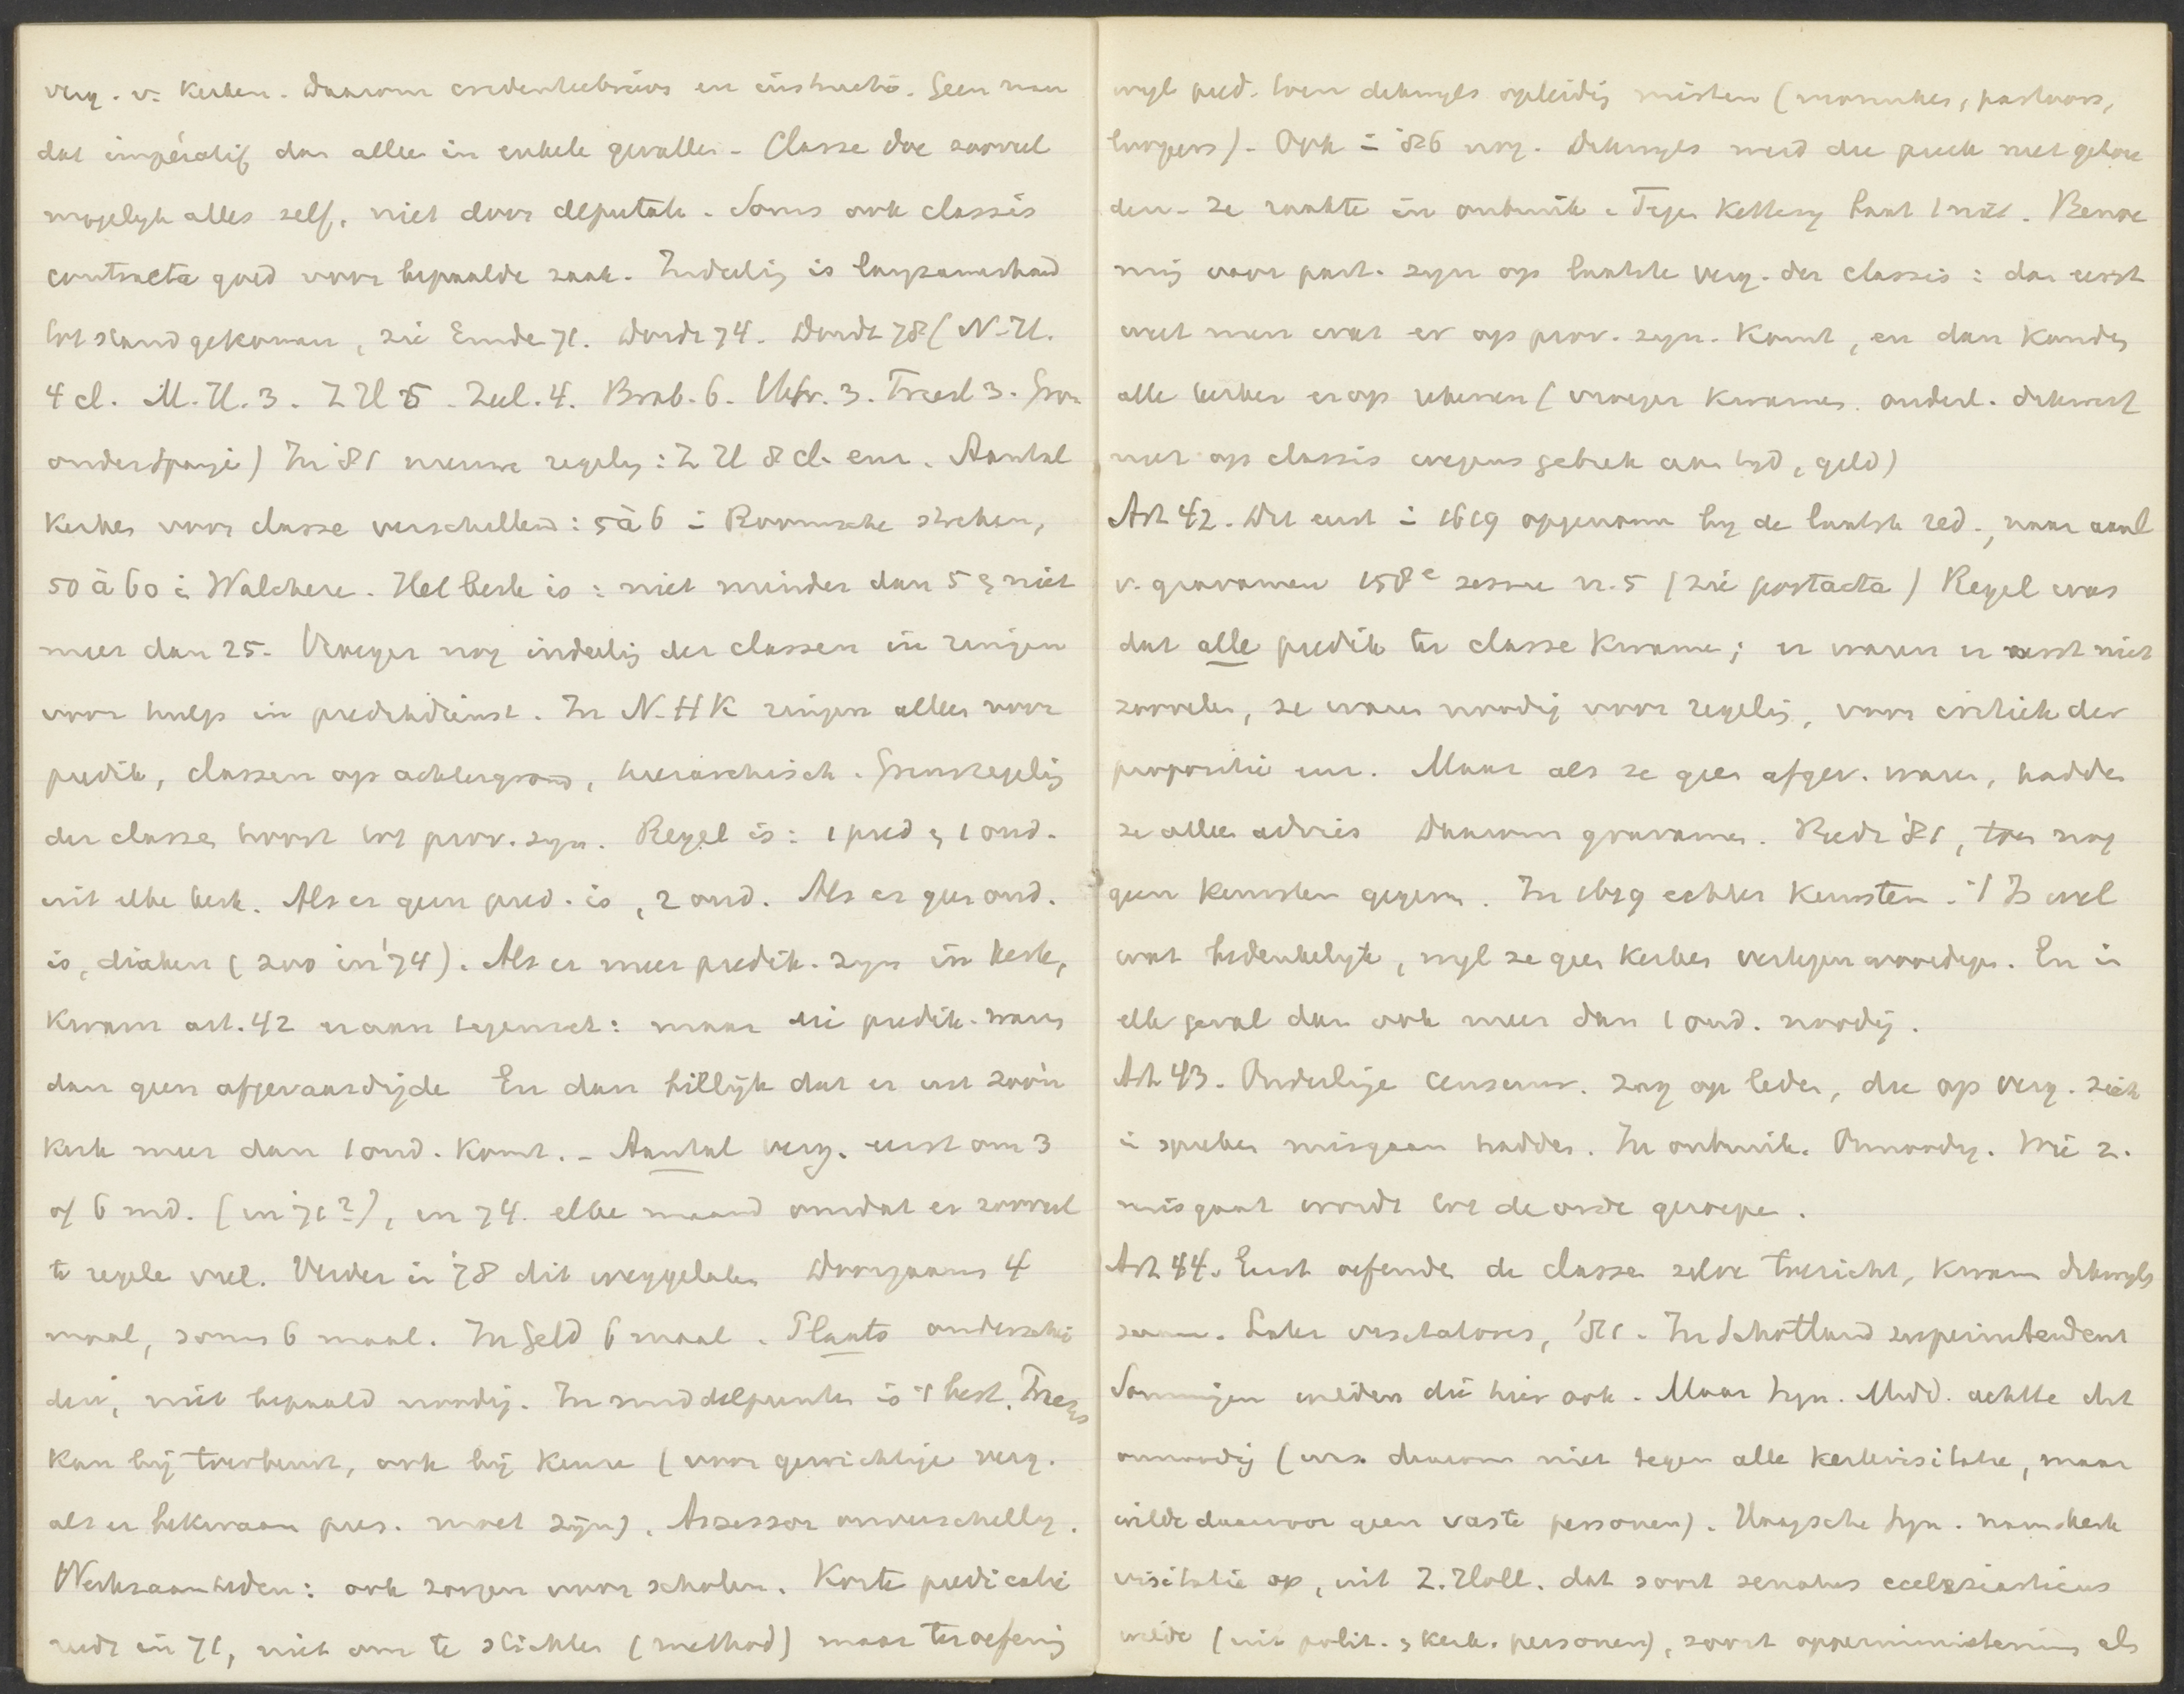 verg. v. Kerken. Daarom credentiebrieven en instructie. Geen man
dat impératif dan alleen in enkele gevallen. Classe doe zooveel
mogelyk alles zelf, niet door deputati. Soms ook classis
contracta goed voor bepaalde zaak. Indeelig is langzamerhand
tot stand gekomen, zie Emde 71. Dordt 74. Dordt 78 (N-H.
4 cl. M.H. 3. Z H 5. Zeel. 4. Brab. 6. Utr. 3. Friesl 3. Gron
onder Spanje) In '81 nieuwe regelig: Z H 8 cl. enz. Aantal
Kerken voor classe verschillend: 5 à 6 i Roomsche streken,
50 à 60 i Walchere. Het beste is: niet minder dan 5 & niet
meer dan 25. Vroeger nog indeelig der classen in ringen
voor hulp in predikdienst. In N.H K ringen alleen voor
predik, classen op achtergrond, hierarchisch. Grensregelig
der classes hoort tot prov. syn. Regel is: 1 pred & 1 oud.
uit elke kerk. Als er geen pred. is, 2 oud. Als er geen oud.
is, diaken (zoo in '74). Als er meer predik. zyn in kerk,
kwam art. 42 eraan tegemoet: maar die predik. waren
dan geen afgevaardigde En dan billijk dat er uit zoo'n
kerk meer dan 1 oud. komt. - Aantal verg. eerst om 3
of 6 md. (in 71?), in 74. elke maand omdat er zooveel
te regele viel. Verder in '78 dit weggelaten Doorgaans 4
maal, soms 6 maal. In Geld 6 maal. Plaats onderschei
den, niet bepaald noodig. In middelpunten is 't best. Praeses
kan bij toerbeurt, ook bij keuze (voor gewichtige verg.
als er bekwaam pres. moet zijn). Assessor onverschillig.
Werkzaamheden: ook zorgen voor scholen. Korte predicatie
reeds in 71, niet om te stichten (method) maar ter oefenig
wyl pred. toen dikwyls opleidig misten (monniken, pastoors,
burgers). Ook i '86 nog. Dikwyls werd die preek niet gehou
den. Ze raakte in onbruik. Tegen kettery baat 1 niet. Benoe
mig voor part. syn op laatste verg. der classis: dan eerst
weet men wat er op prov. syn. komt, en dan kunnen
alle kerken er op rekenen (vroeger kwamen ouderl. dikwerf
niet op classis wegens gebrek aan tyd, geld)
Art 42. Dit eerst i 1619 opgenomen by de laatste red., naar aanl
v. gravamen 158e sessie n. 5 (zie postacta) Regel was
dat alle predik ter classe kwame; er waren er eerst niet
zoovelen, ze waren noodig voor regelig, voor critiek der
propositie enz. Maar als ze geen afgev. waren, hadden
ze alleen advies Daarom gravamen. Reeds '81, toen nog
geen keurstem gegeven. In 1619 echter keurstem. 't Is wel
wat bedenkelyk, wyl ze geen kerken vertegenwoordigen. En in
elk geval dan ook meer dan 1 oud. noodig.
Art 43. Onderlinge censuur. zag op leden, die op verg. zich
i spreken misgaan hadden. In onbruik. Onnoodig. Wie z.
misgaat wordt tot de orde geroepen.
Art 44. Eerst oefende de classe zelve toezicht, kwam dikwyls
samen. Later visitatores, '81. In Schotland superintendent
Sommigen wilden die hier ook. Maar Syn. Midd. achtte dit
onnoodig (was daarom niet tegen alle kerkvisitatie, maar
wilde daarvoor geen vaste personen). Haagsche Syn. nam kerk
visitatie op, uit Z. Holl. dat soort senatus ecclesiasticus
wilde (uit polit. & kerk. personen), soort opperministerium als